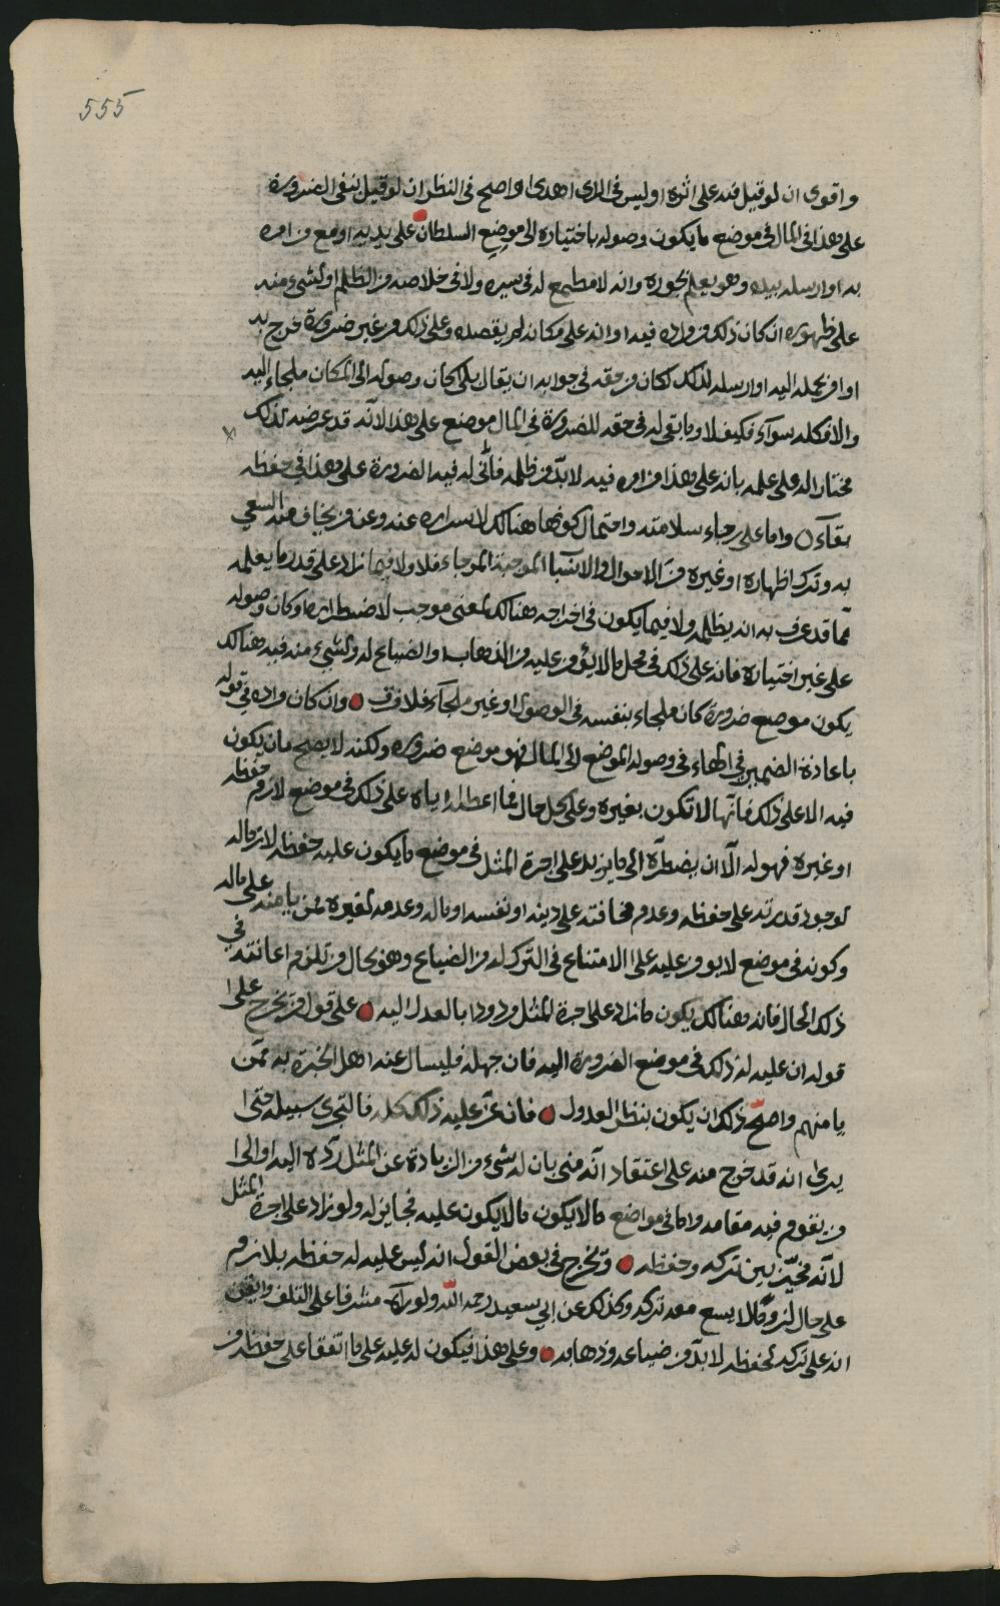 555
واقوى ان لو قيل فيه على اثره او ليس في الراى اهدى واصلح في النظر ان لو قيل بنفي الضرورة
على هذا في المال في موضع ما يكون وصوله باختياره الى موضع السلطان على يديه او مع من امره
به او ارسله بيده وهو يعلم بجوره وانه لا مطمع له في سيره ولا في خلاصه من الظلم او لشيء منه
على ظهوره ان كان ذلك مراده فيه او انه على مكانه لم يقصده وعلى ذلك من غير ضرورة خرج به
او امر بحمله اليه او ارسله لذلك لكان من حقه في جوابه ان يقال بلى كان وصوله الى المكان ملجاء اليه
والا فكله سوآء فكيف لا وما بقي له في حقه للضرورة في المال موضع على هذا لانه قد عرضه لذلك
مختارا له على علمه بانه على هذا من امره فيه لا بد من ظلمه فأنّى له فيه الضرورة على هذا في حفظه
بقآء ○ واما على رجاء سلامته واحتمال كونها هنالك لاسراره عنه وعن من يخاف منه السعي
به وترك اظهاره او غيره من الاحوال والاسباب الموجبة للرجاء فلا ولا فيما زاد على قدر ما يعلمه
مما قد عرف به انه يظلمه ولا فيما يكون في اخراجه هنالك لمعنى موجب لاضطراره او كان وصوله
على غير اختياره فانه على ذلك في محل ما لا يؤمن عليه من الذهاب والضياع له ولشيء منه فيه هنالك
يكون موضع ضرورة كان ملجاء بنفسه في الوصول او غير ملجآء فلا فرق وان كان مراده في قوله
باعادة الضمير في الهاء في وصوله الموضع الى المال فهو موضع ضروره ولكنه لا يصح بان يكون
فيه الا على ذلك فانها لا تكون بغيره وعلى كل حال فما اعطاه اياه على ذلك في موضع لازم حفظه
او غيره فهو له الّا ان يضطرّه الى ما يزيد على اجرة المثل في موضع ما يكون عليه حفظه لانزاله
لوجود قدرته على حفظه وعدم مخافته على دينه او نفسه او ماله وعدمه لغيره ممن يامنه على ماله
وكونه في موضع لا يومن عليه على الامتناع في الترك له من الضياع وهو بحال من تلزم اعانته في
ذلك الحال فانه هنالك يكون ما زاد على اجرة المثل مردودا بالعدل اليه على قول من يخرج على
قوله ان عليه له ذلك في موضع الضرورة اليه فان جهله فليسال عنه اهل الخبرة به ممّن
يا منهم واصحّ ذلك ان يكون بنظر العدول فان عزّ عليه ذلك كله فالتحرى سبيله حتى
يرى انه قد خرج منه على اعتقاد انه متى بان له شيء من الزيادة عن المثل ردّه اليه او الى
من يقوم فيه مقامه واما في مواضع ما لا يكون ما لا يكون عليه فجايز له ولو زاد على اجرة المثل
لانه مخيّر بين تركه وحفظه ويخرج في بعض القول انه ليس عليه له حفظه بلازم
على حال لزومًا لا يسع معه تركه وكذلك عن ابي سعيد رحمه اللّه ولو رآه مشرفا على التلف وايقن
انه على تركه لحفظه لا بدّ من ضياعه وذهابه وعلى هذا فيكون له عليه على ما اتفقا على حفظه من